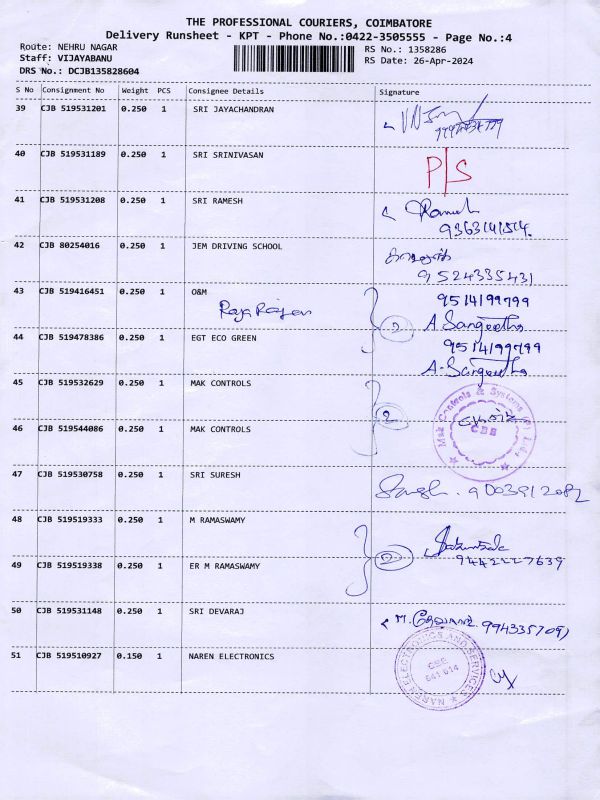 THE PROFESSIONAL COURIERS, COIMBATORE
Delivery Runsheet - KPT - Phone No.:0422-3505555 - Page No.:4
Route: NEHRU NAGAR RS No.: 1358286
Staff: VIJAYABANU RS Date: 26-Apr-2024
DRS No.: DCJB135828604
S No Consignment No Weight PCS Consignee Details Signature
39 CJB 519531201 0.250 1 SRI JAYACHANDRAN
40 CJB 519531189 0.250 1 SRI SRINIVASAN P/S
41 CJB 519531208 0.250 1 SRI RAMESH Ramesh
42 CJB 80254016 0.250 1 JEM DRIVING SCHOOL
9524335431
43 CJB 519416451 0.250 1 O&M 9514199799
Raja Rajan 2 A. Sangeetha
44 CJB 519478386 0.250 1 EGT ECO GREEN 9514199799
A-Sangeetha
45 CJB 519532629 0.250 1 MAK CONTROLS
2 Mak Controls & Systems (P) Ltd.
CBE
46 CJB 519544086 0.250 1 MAK CONTROLS
47 CJB 519530758 0.250 1 SRI SURESH 9003912082
48 CJB 519519333 0.250 1 M RAMASWAMY
2 9442227639
49 CJB 519519338 0.250 1 ER M RAMASWAMY
50 CJB 519531148 0.250 1 SRI DEVARAJ M.
NAREN ELECTRONICS AND SERVICES
641 014
51 CJB 519510927 0.150 1 NAREN ELECTRONICS